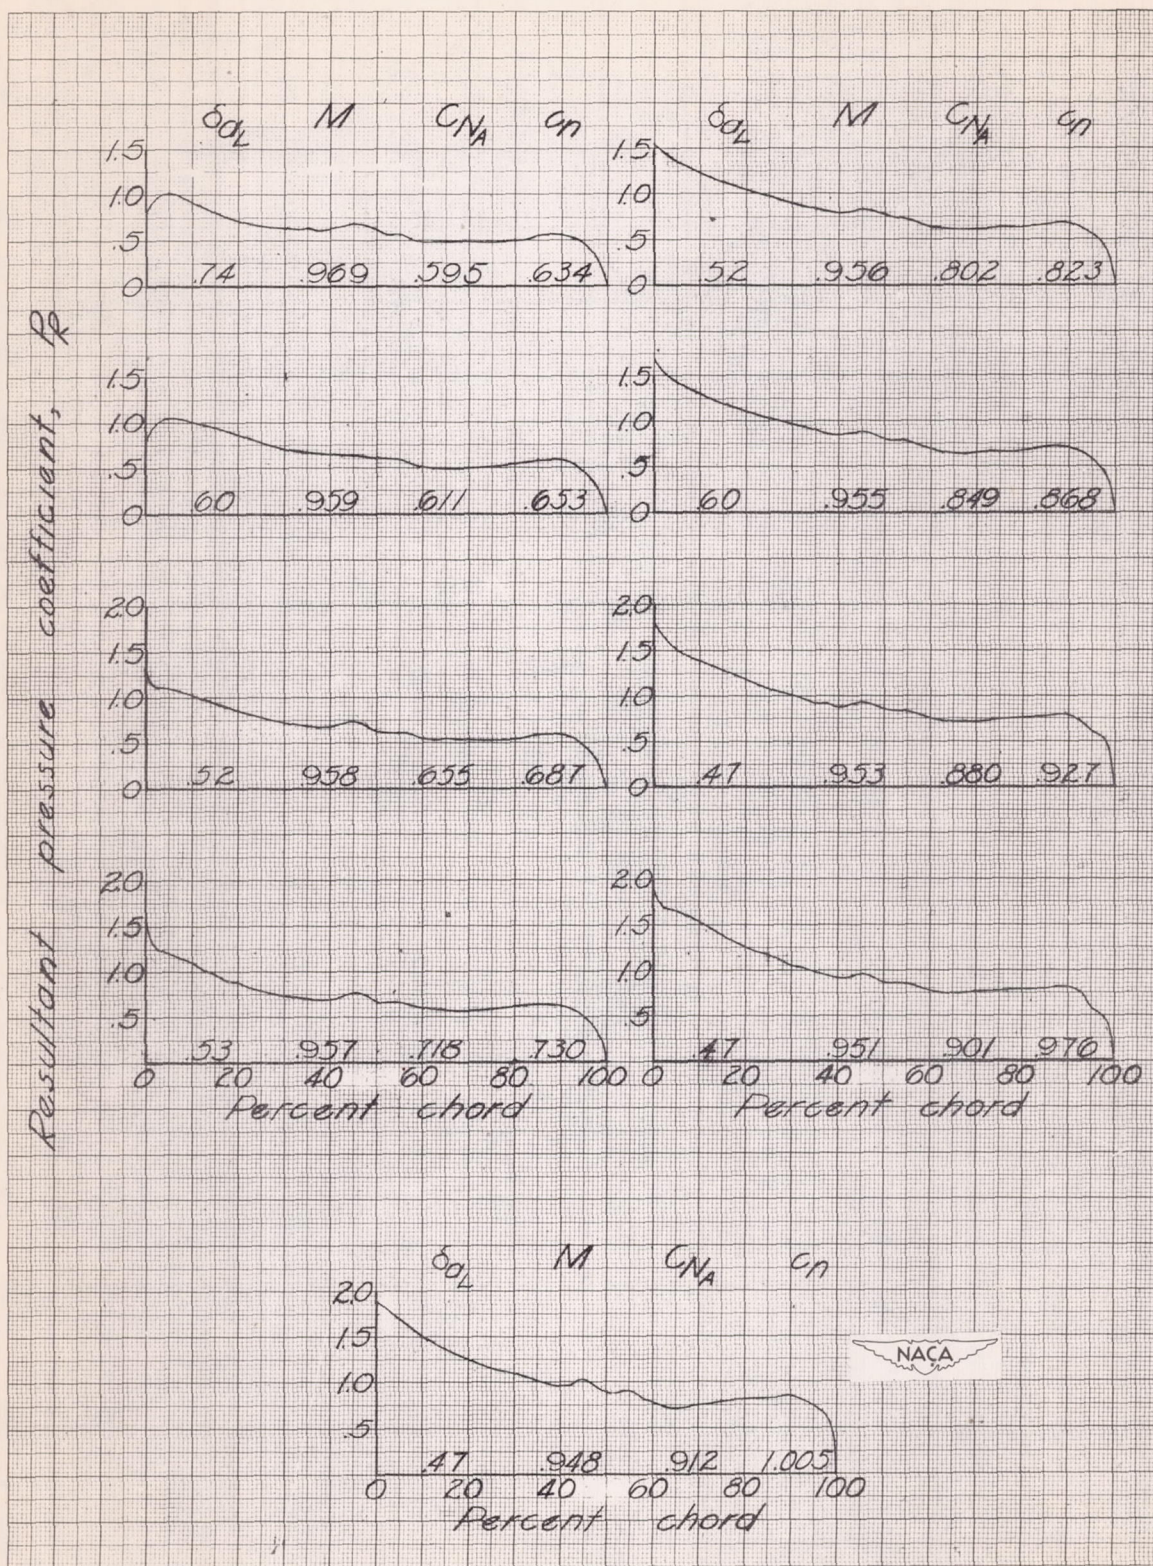 Resultant pressure coefficient, P_R
δ_aL M C_NA c_n
1.5
1.0
.5
0
.74 .969 .595 .634
1.5
1.0
.5
0
.60 .959 .611 .653
2.0
1.5
1.0
.5
0
.52 .958 .655 .687
2.0
1.5
1.0
.5
.53 .957 .718 .730
0 20 40 60 80 100
Percent chord
δ_aL M C_NA c_n
1.5
1.0
.5
0
.52 .956 .802 .823
1.5
1.0
.5
0
.60 .955 .849 .868
2.0
1.5
1.0
.5
0
.47 .953 .880 .927
2.0
1.5
1.0
.5
.47 .951 .901 .976
0 20 40 60 80 100
Percent chord
δ_aL M C_NA c_n
2.0
1.5
1.0
.5
.47 .948 .912 1.005
0 20 40 60 80 100
Percent chord
NACA